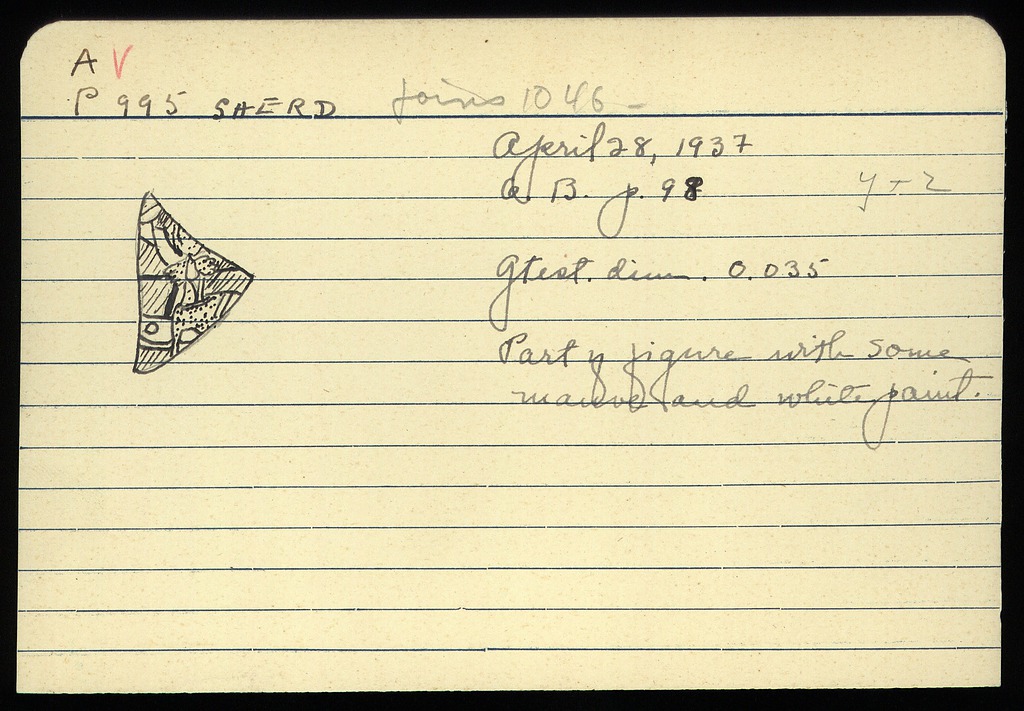 A V
P 995 SHERD joins 1046 -
April 28, 1937
B. p. 98
Gtest. dim. 0.035
Part of figure with some
mauve and white paint.